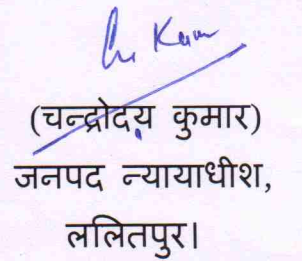 (चन्द्रोदय कुमार)
जनपद न्यायाधीश,
ललितपुर।